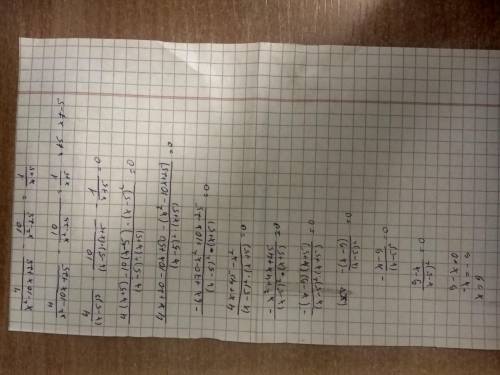 4/(x²-10x+25) - 10/(x²-25) = 1/(x+5)
4/(x²-10x+25) - 10/(x²-25) = 1/(x+5) x≠5 x≠-5
4/(x-5)² - 10/((x-5)(x+5)) - 1/(x+5) = 0
(4(x+5)-10(x-5)-(x-5)²)/((x-5)²·(x+5)) = 0
(4x+20-10x+50-(x²-10x+25))/((x-5)²·(x+5)) = 0
(-6x+70-x²+10x-25)/((x-5)²·(x+5)) = 0
(4x+45-x²)/((x-5)²·(x+5)) = 0
(-x²+4x+45)/((x-5)²·(x+5)) = 0
(-(x-9)(x+5))/((x-5)²(x+5)) = 0
(-(x-9))/(x-5)² = 0
-(x-9)/(x-5)² = 0
(9-x)/(x-5)² = 0
9-x=0
-x=-9
x=9